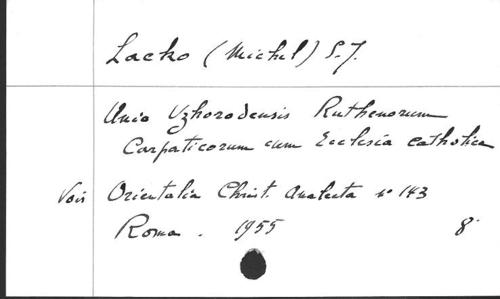 Lacko (Michel) S.J.
Unio Uzhorodensis Ruthenorum
Carpaticorum cum Ecclesia catholica
Voir Orientalia Christ. Analecta n° 143
Roma. 1955 8°